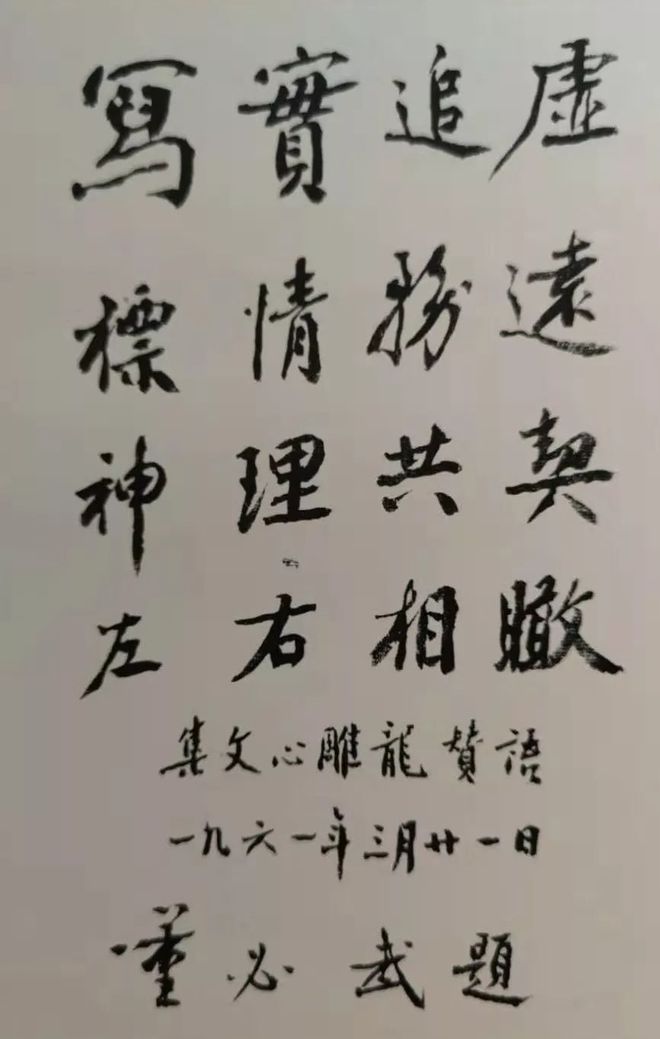 寫實追虚
標情務遠
神理共契
左右相瞰
集文心雕龍賛語
一九六一年三月廿一日
董必武題